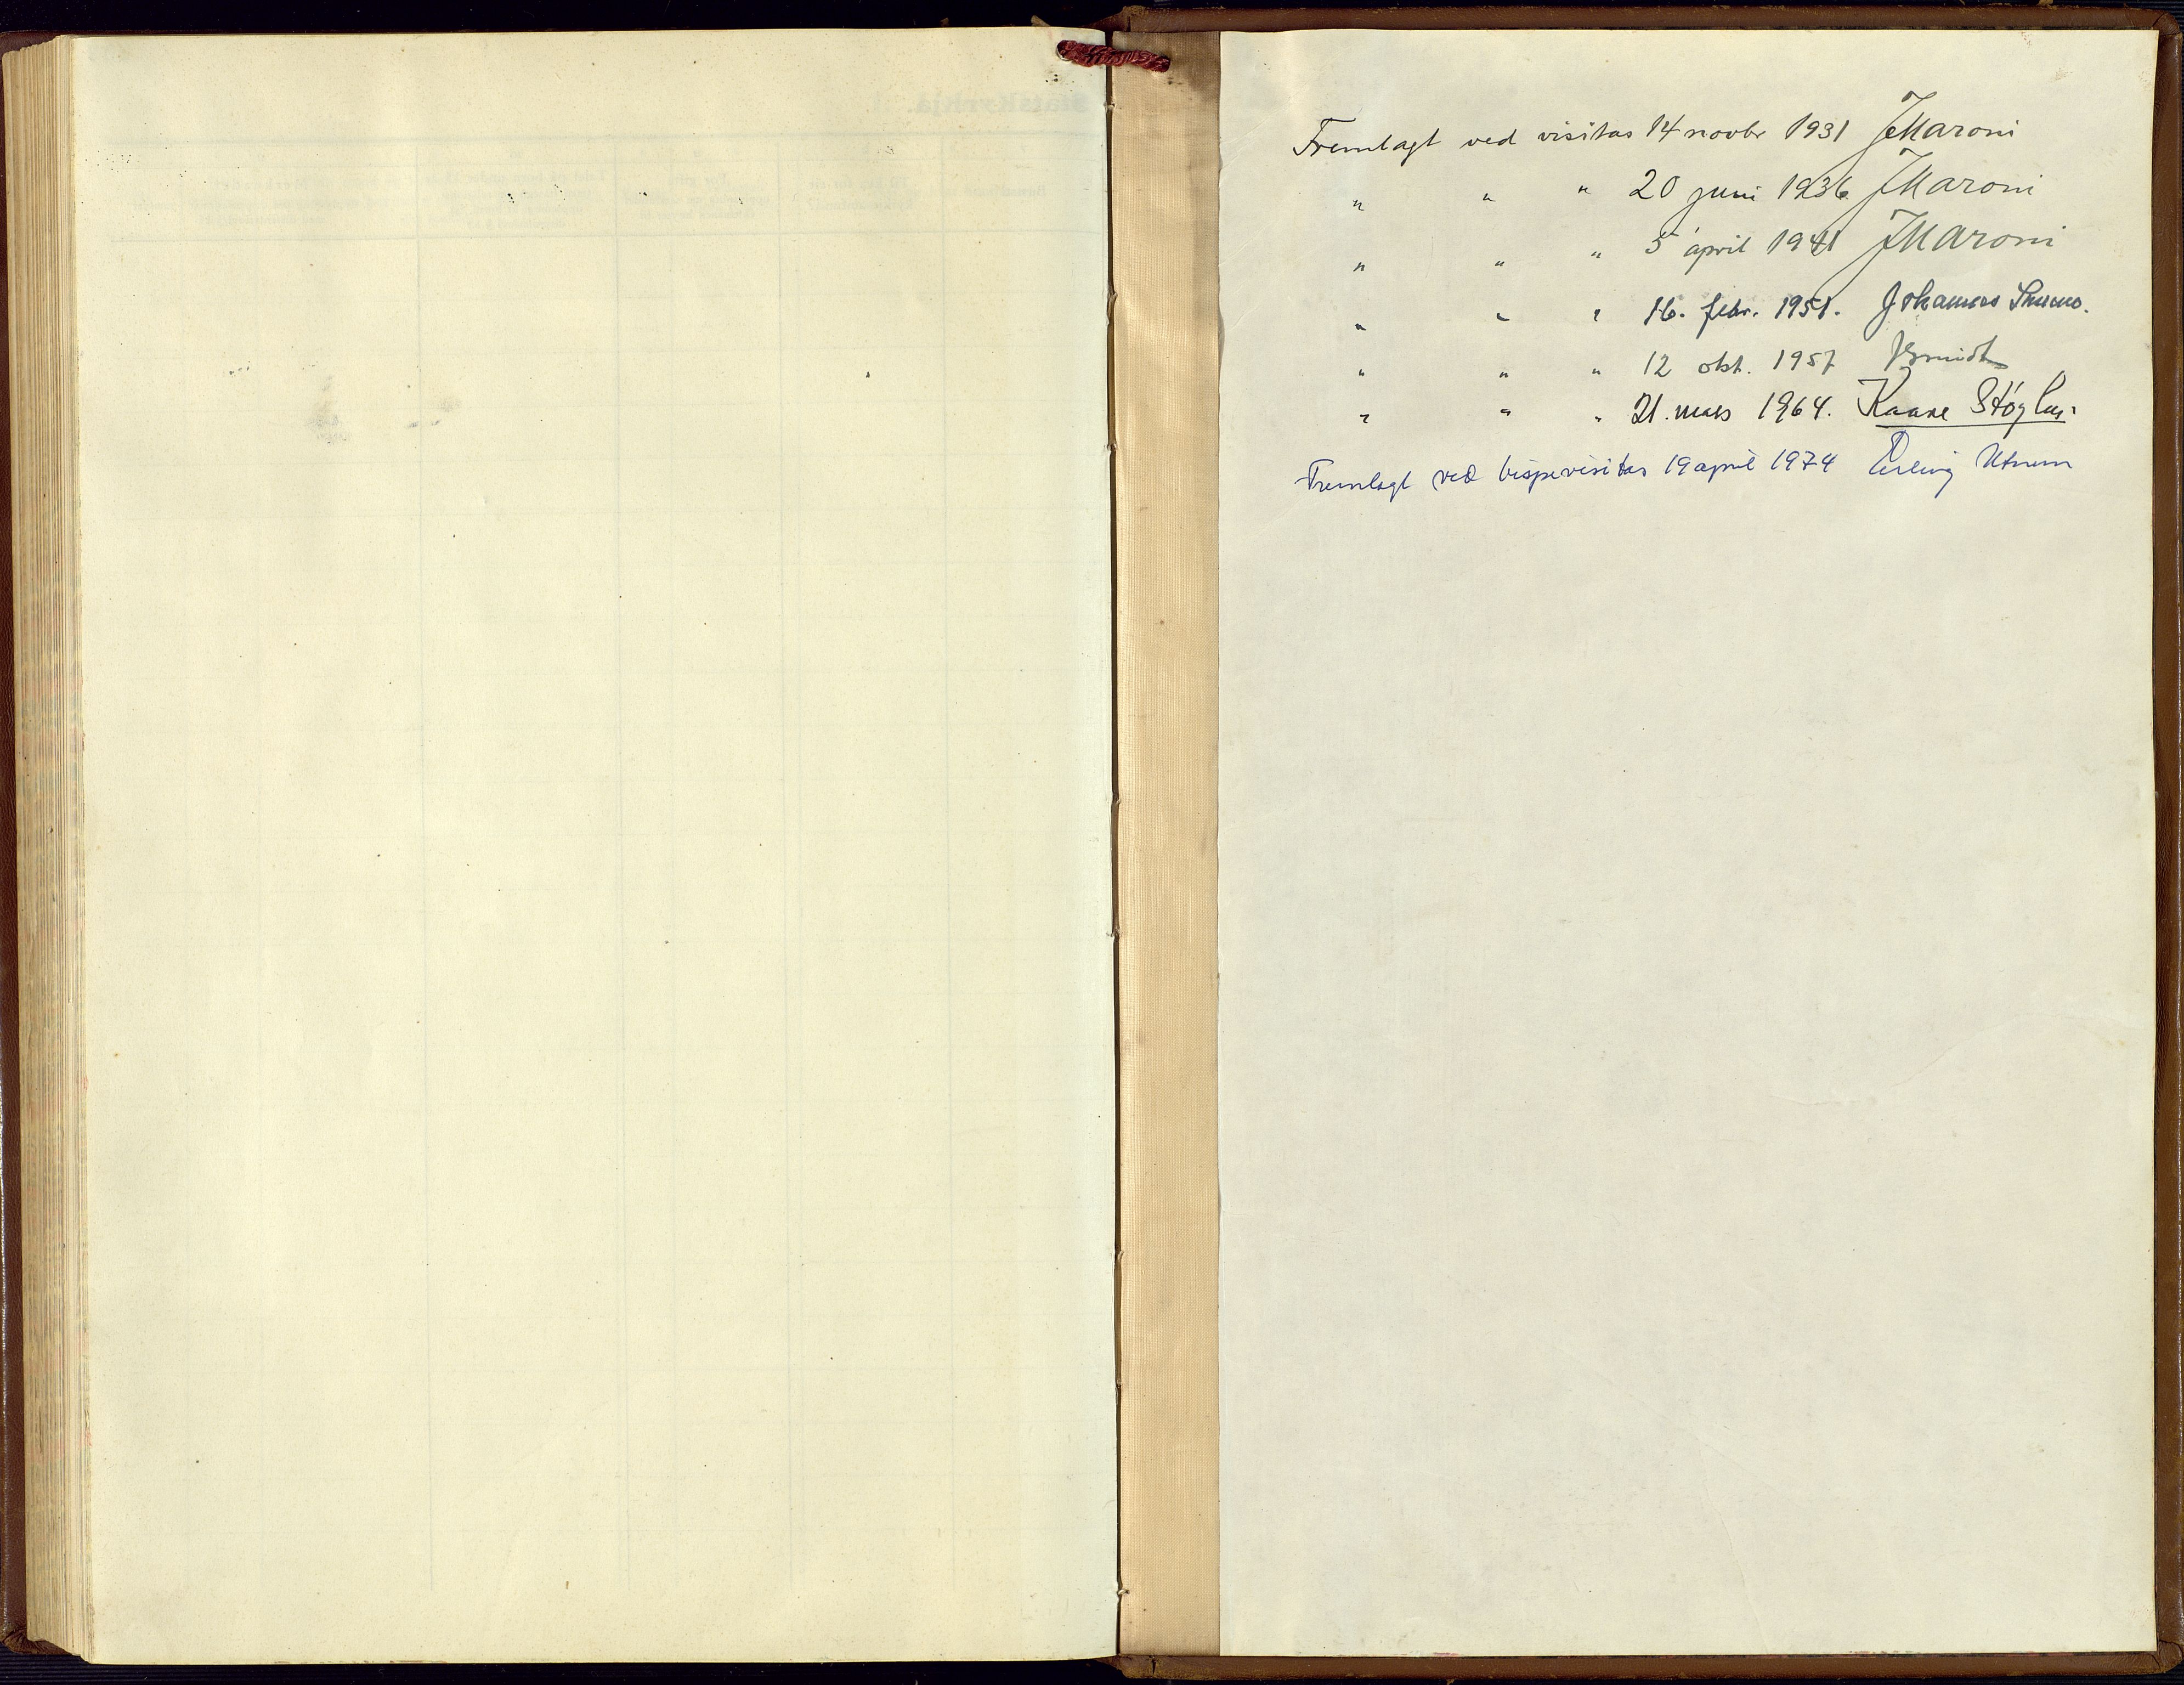 Fremlagt ved visitas 14 novbr 1931 JMaroni
" " " 20 juni 1936 JMaroni
" " " 5 april 1941 JMaroni
" " " 16. febr. 1951. Johannes Smemo.
" " " 12 okt. 1957 JSmidt
" " " 21. mars 1964. Kaare Støylen
Fremlagt ved bispevisitas 19 april 1974 Erling Utnem